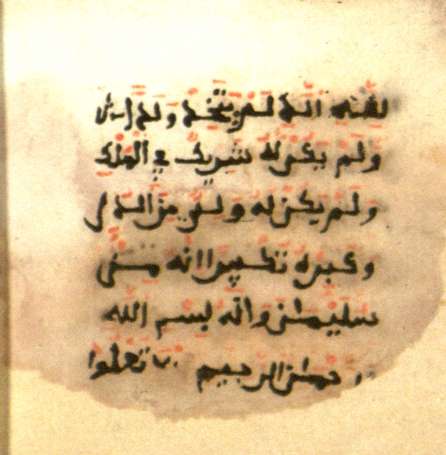 لله الذي لم يتخذ ولدا
ولم يكن له شريك في الملك
ولم يكن له ولي من الذل
وكبره تكبيرا انه من
سليمن وانه بسم الله
الرحيم تعلوا